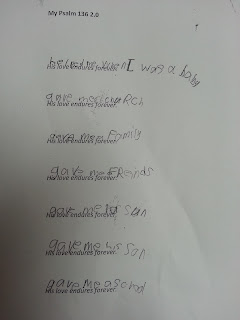 My Psalm 136 2.0
helped me when I was a baby
His love endures forever.
gave me church
His love endures forever.
gave me Family
His love endures forever.
gave me FRiends
His love endures forever.
gave me sun
His love endures forever.
gave me his Son
His love endures forever.
gave me a school
His love endures forever.